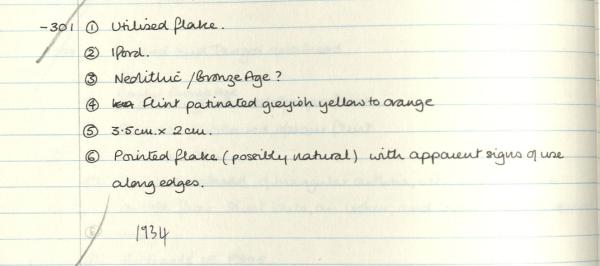 -301 ① Utilised flake.
② Ipord.
③ Neolithic / Bronze Age ?
④ Flint patinated greyish yellow to orange
⑤ 3.5cm. x 2cm.
⑥ Pointed flake (possibly natural) with apparent signs of use
along edges.
1934